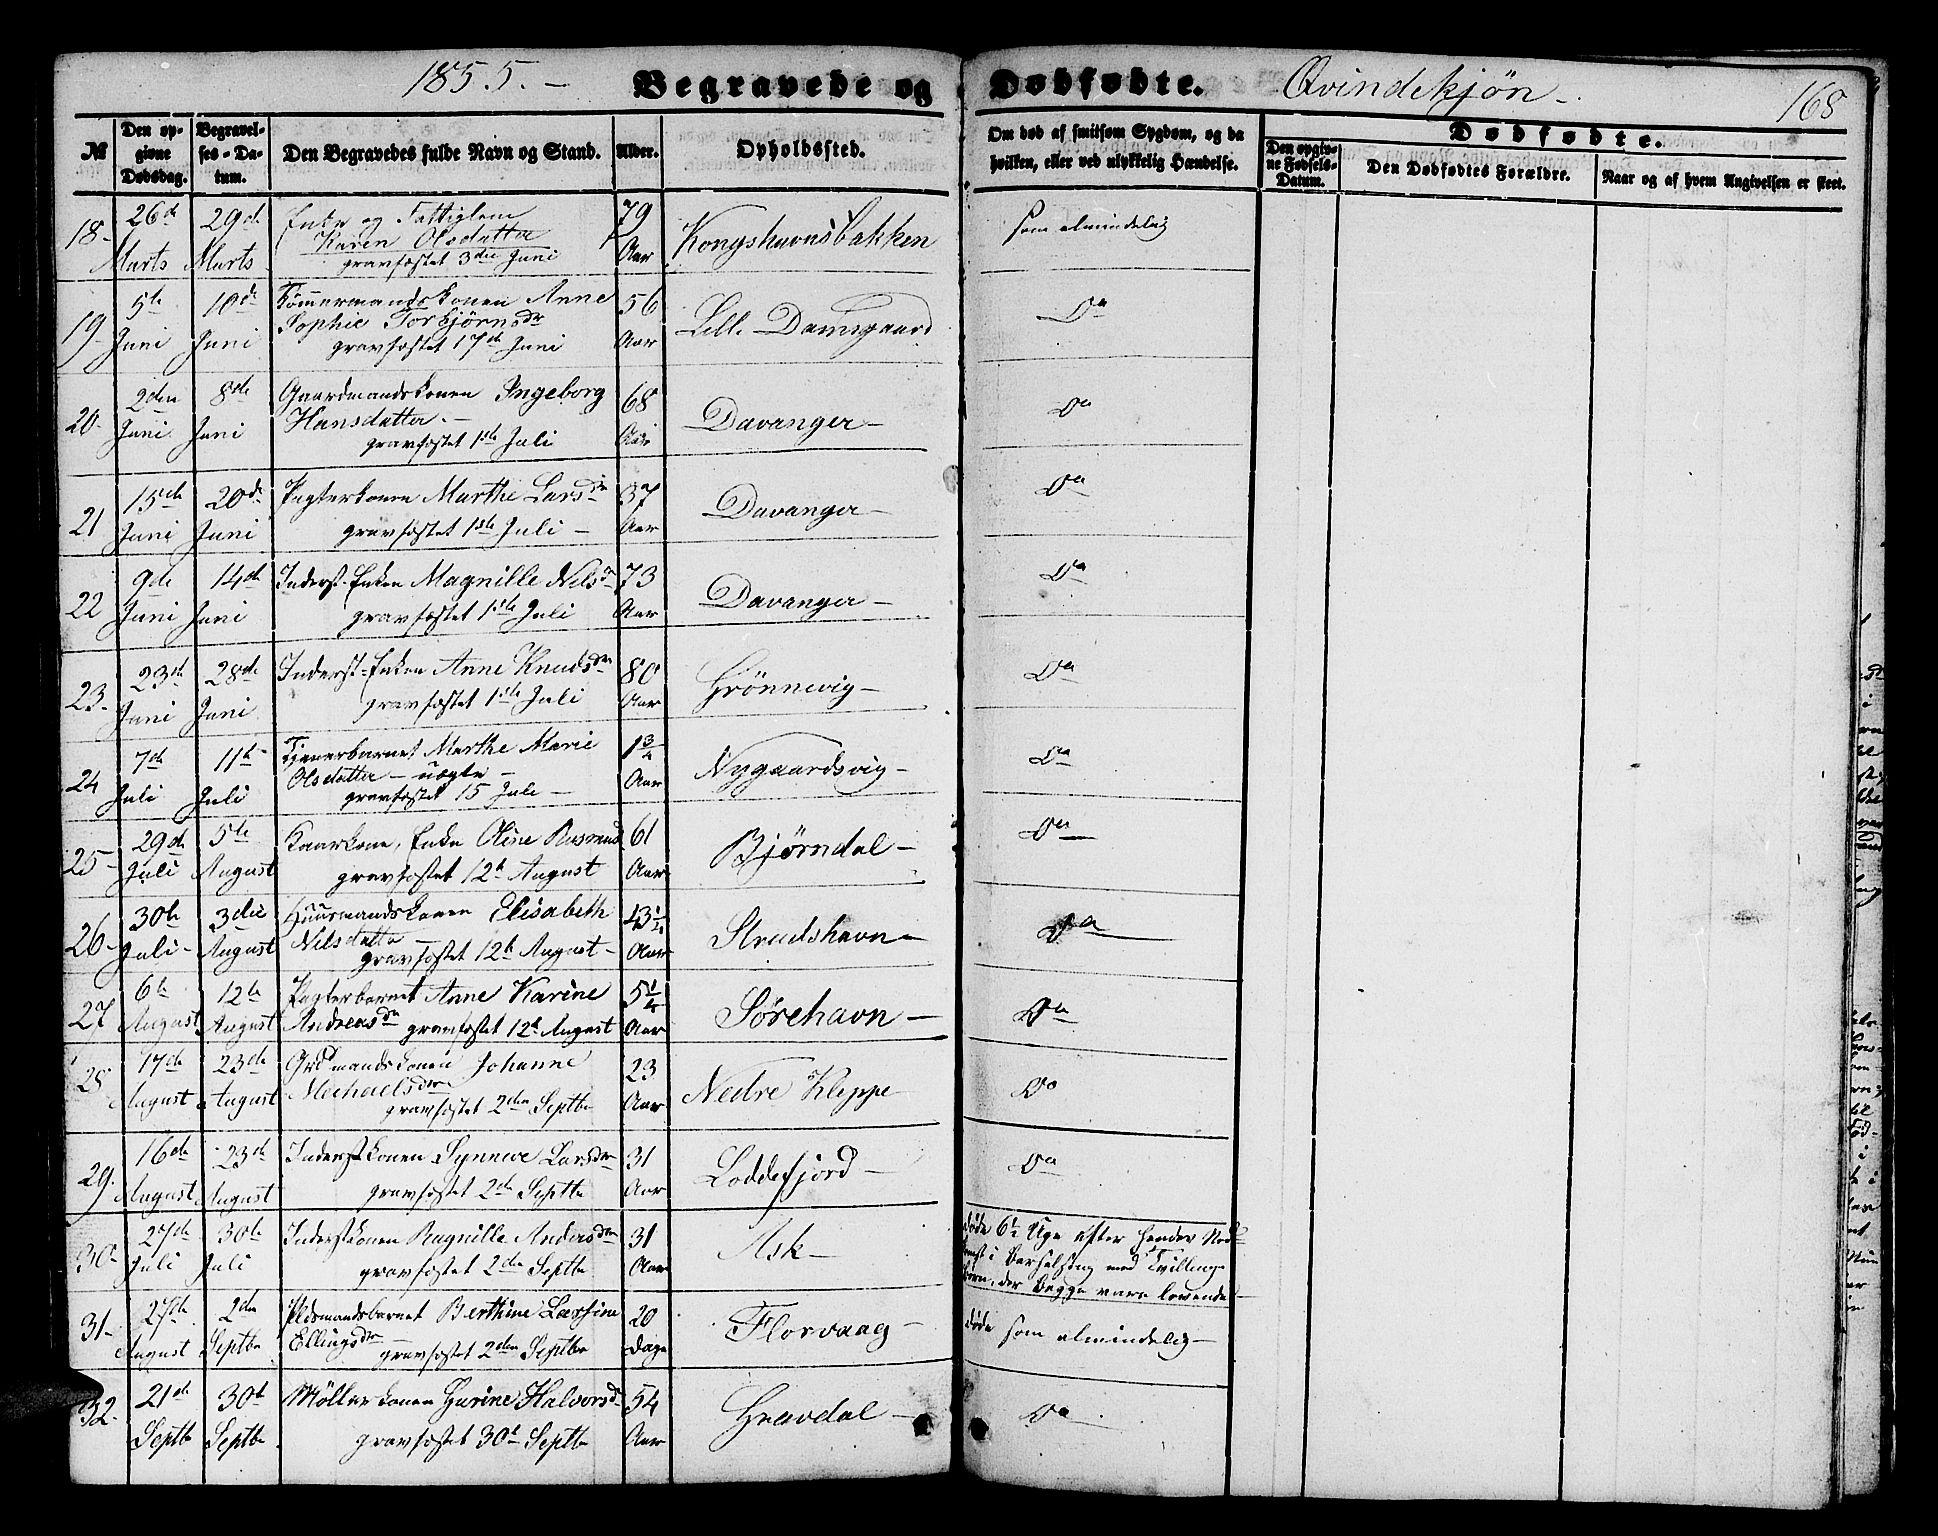 1855. — Begravede og Dødfødte. Qvindekjøn. 168
№ Den opgivne Dødsdag. Begravelses-Datum. Den Begravedes fulde Navn og Stand. Alder. Opholdssted. Om død af smitsom Sygdom, og da hvilken, eller ved ulykkelig Hændelse. Dødfødte. Den opgivne Fødsels-Datum. Den Dødfødtes Forældre. Naar og af hvem Angivelsen er skeet.
18- 26de Marts 29de Marts Enke og Fattiglem
Karen Olsdatter
gravfæstet 3die Juni 79 Aar Kongshavnsbakken som almindelig
19- 5te Juni 10de Juni Tømmermandskonen Anne
Sophie Torbjørnsdr
gravfæstet 17de Juni 56 Aar Lille Damsgaard Do
20- 2den Juni 8de Juni Gaardmandskonen Ingeborg
Hansdatter. —
gravfæstet 1ste Juli 68 Aar Davanger — Do
21 15de Juni 20de Juni Pagterkonen Marthe Larsdr
gravfæstet 1ste Juli — 37 Aar Davanger — Do
22 9de Juni 14de Juni Inderst-Enken Magnille Nilsdr
gravfæstet 1ste Juli 73 Aar Davanger — Do
23- 23de Juni 28de Juni Inderst-Enken Anne Knudsdr
gravfæstet 1ste Juli 80 Aar Grönnevig — Do
24 7de Juli 11te Juli Tjenerbarnet Marthe Marie
Olsdatter — uægte —
gravfæstet 15 Juli — 1 3/4 Aar Nygaardsvig — Do
25- 29de Juli 5te August Kaarkone, Enke Oline Rasmusd
gravfæstet 12te August 61 Aar Bjørndal — Do
26- 30te Juli- 3die August Huusmandskonen Elisabeth
Nilsdatter —
gravfæstet 12te August — Aar Strudshavn — Do
27 6te August 12te August Pagterbarnet Anne Karine
Andreasdr gravfæstet 12te August 5 1/4 Aar Sørehavn — Do
28 17de August 23de August Grdmandskonen Johanne
Michaelsdr
gravfæstet 2den Septbr 23 Aar Nedre Kleppe Do
29. 16de August 23de August Inderstkonen Synneve Larsdr
gravfæstet 2den Septbr 31 Aar Loddefjord — Do
30- 27de Juli 30te Juli Inderstkonen Ragnille Andersdr
gravfæstet 2den Septbr 31 Aar Ask — døde 6½ Uge efter hendes Ned-
komst i Barselseng med Tvillinge-
børn, der begge vare levende —
31- 27de August 2den Septbr Pldsmandsbarnet Berthine Larsine
Ellingsdr
gravfæstet 2den Septbr 20 Dage Florvaag — døde som almindelig —
32- 21de Septbr 30te Septbr Møllerkonen Gurine Halvorsdr
gravfæstet 30te Septbr 54 Aar Gravdal — Do